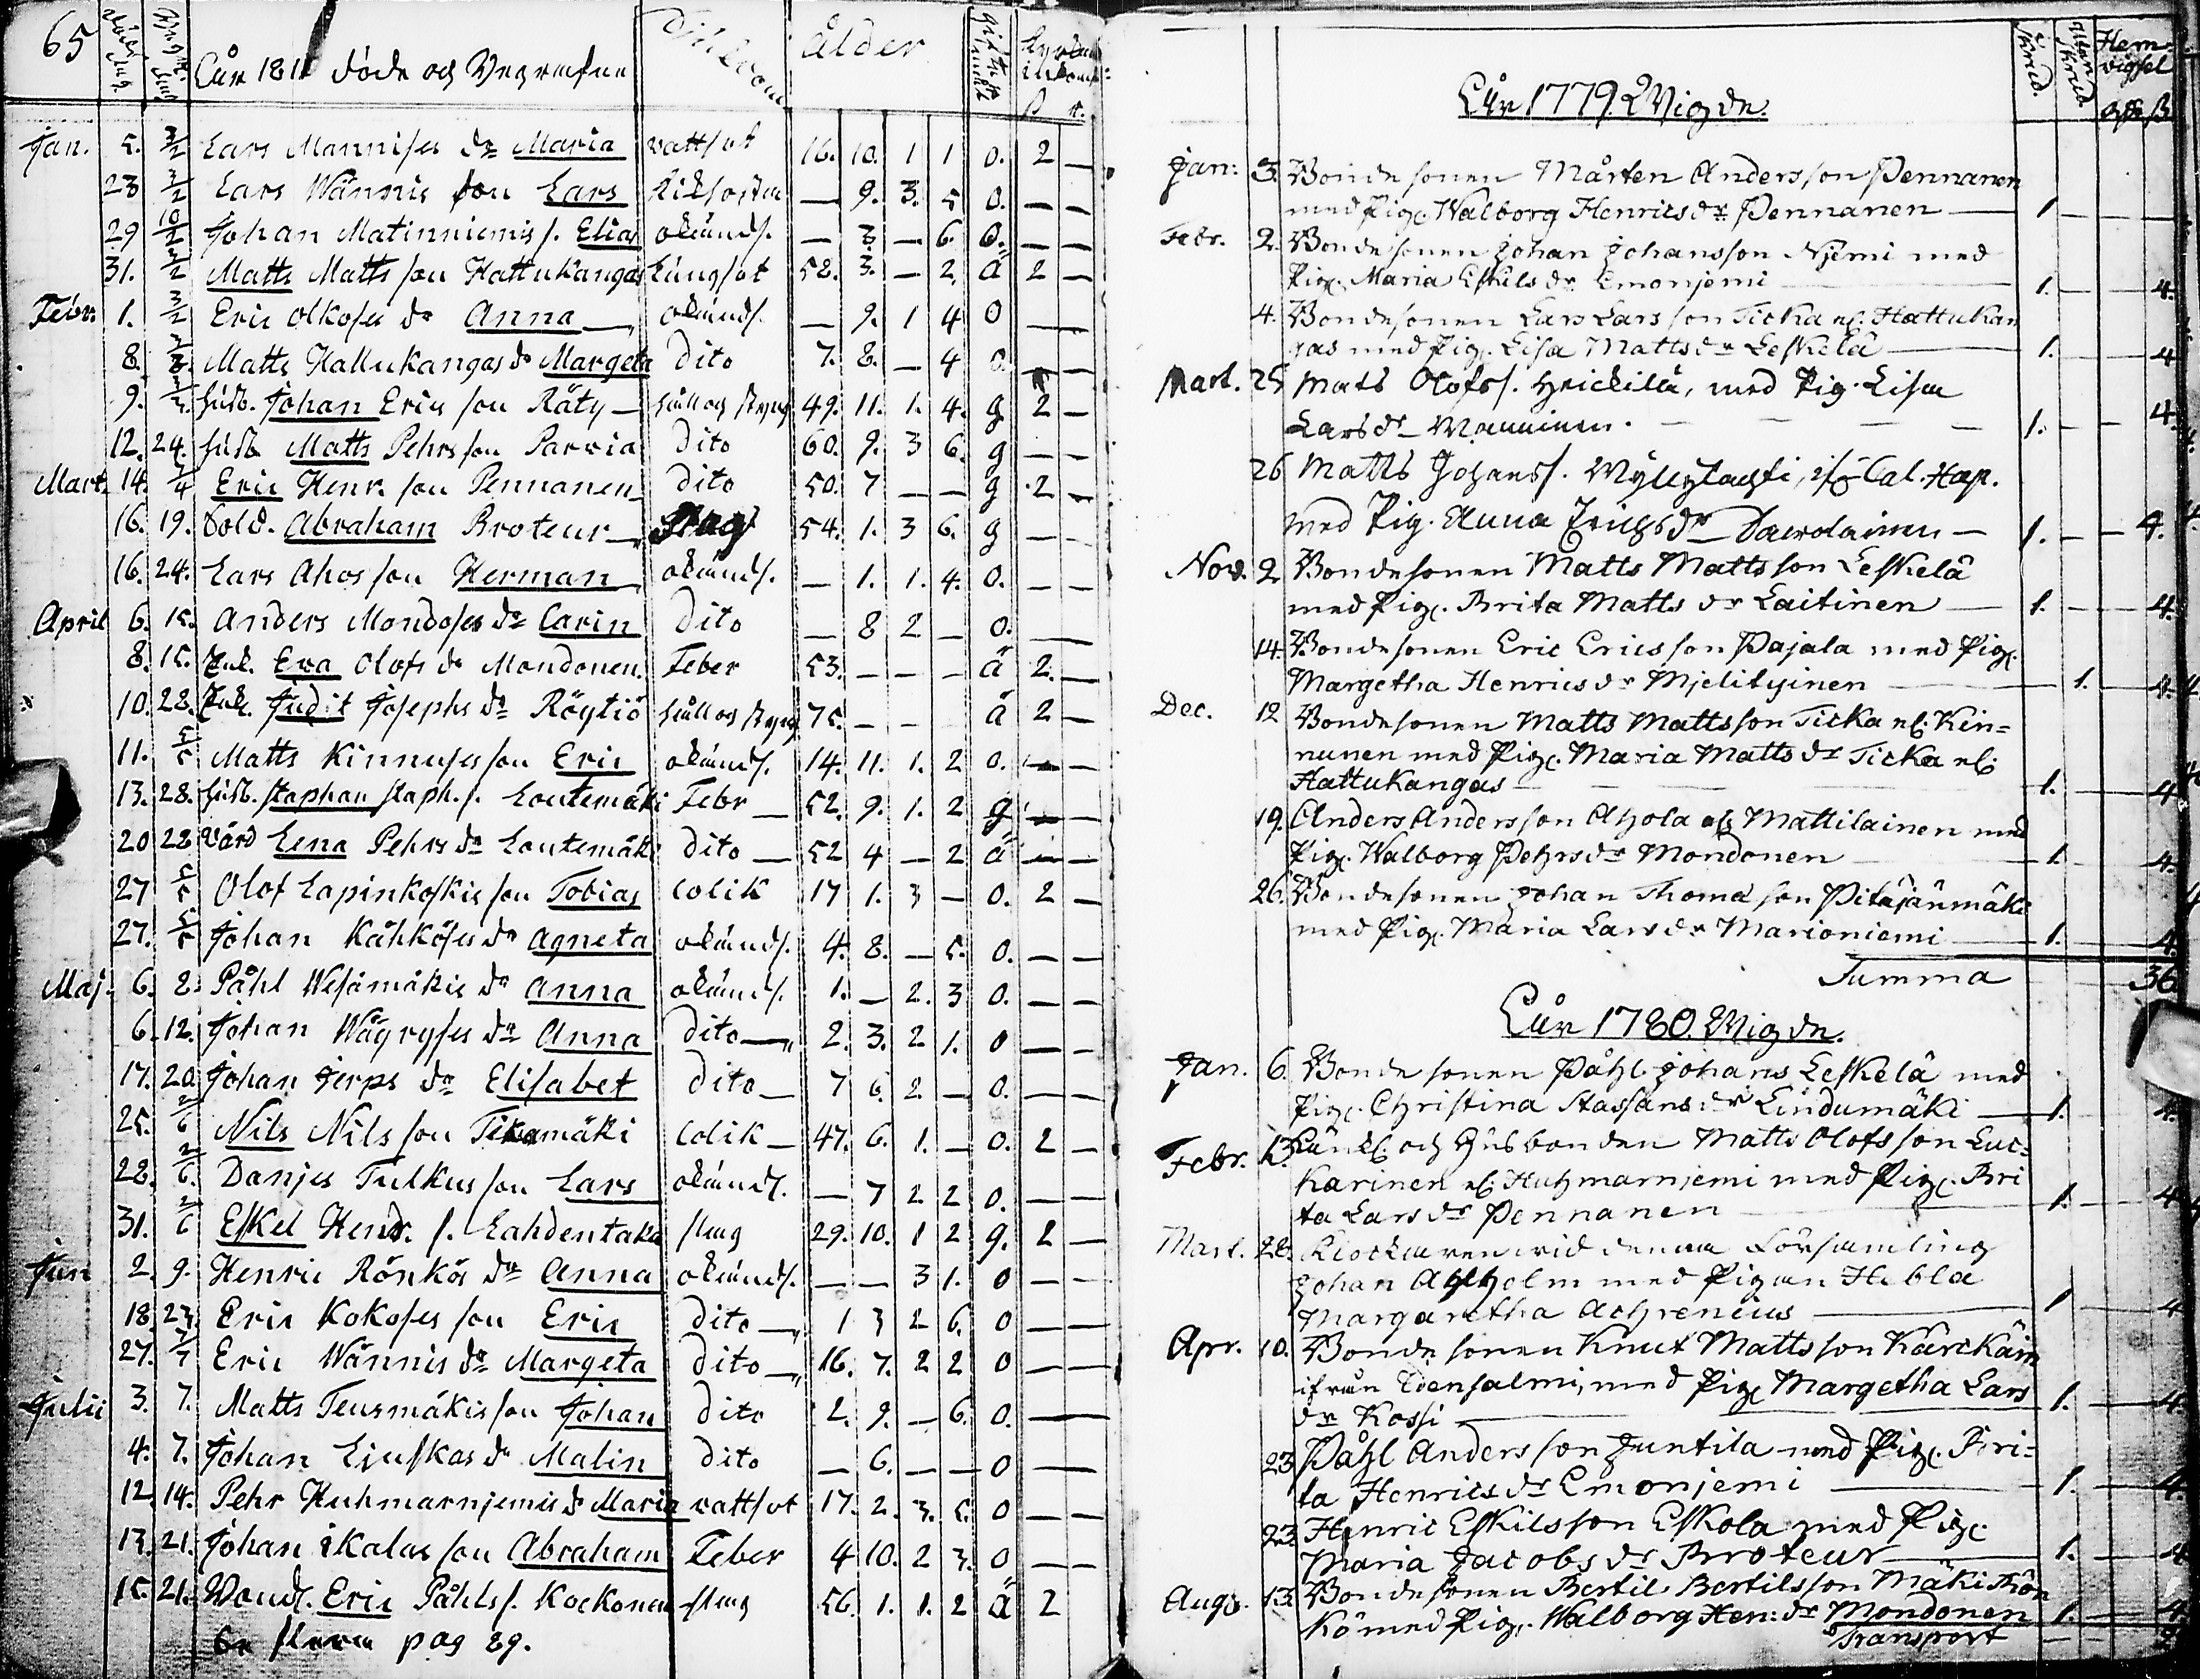 65 Åhr 1811 döde och Begrafne
ålder
Jan. 5. 3/2 Lars Mannises dr Maria vattsot 16. 10. 1 1 0. 2 —
23 3/2 Lars Wännis son Lars Kikhosta — 9. 3. 5 0. — —
29 10/2 Johan Matinniemis s. Elias okänds. — 3. — 6. 0. — —
31. 3/2 Matts Matts son Hattukangas Lungsot 58. 3. — 2. ä 2 —
Febr. 1. 3/2 Eric Olkoses dr Anna okänds. — 9. 1 4 0 — —
8. Matts Hallukangas dr Margeta Dito 7. 8. — 4 0. — —
9. husb. Johan Erics son Räty håll och styng 49. 11. 1. 4. g 2 —
12. 24. husb Matts Pehrs son Parvia Dito 60. 9. 3 6. g — —
Mart. 14. 7/4 Eric Henr. son Pennanen Dito 50. 7 — — g 2 —
16. 19. Sold. Abraham Broteur Slag 54. 1. 3 6. g — —
16. 24. Lars Ahos son Herman okänds. — 1. 1. 4. 0. — —
April 6. 15. Anders Mondoses dr Carin Dito — 8 2 — 0. — —
8. 15. Enk. Eva Olofs dr Mondonen. Feber 53. — — — ä 2. —
10. 28. Enk. Judit Josephs dr Röytiö håll och styng 75. — — ä 2 —
11. 5/5 Matts Kinnuses son Eric okänds. 14. 11. 1. 2 0. — —
13. 28. husb. Staphan Staph. s. Loutemäki Febr 52. 9. 1. 2 g — —
20 28 Lena Pehrs dr Loutemäki Dito 52 4 — 2 ä — —
27 5/5 Olof Lapinkoskis son Tobias Colik 17 1. 3 — 0. 2 —
27. 5/5 Johan Kähköses dr Agneta okänds. 4. 8. — 5. 0. — —
Maj. 6. 8. Påhl Wesämäkis dr Anna okänds. 1. — 2. 3 0. — —
6. 12. Johan Wäyryses dr Anna Dito 2. 3. 2 1. 0 — —
17. 20. Johan Jerps dr Elisabet Dito 7 6. 2. — 0. — —
25. 2/6 Nils Nils son Tikamäki Colik 47. 6. 1. — 0. 2 —
28. 2/6. Danjes Tulkus son Lars okänds. — 7 2 2 0. — —
31. 2/6 Eskel Hendr. s. Lahdentaka slag 29. 10. 1 2 g. 2 —
Jun 2. 9. Henric Rönkös dr Anna okänds. — — 3 1. 0 — —
18. 23. Eric Kokoses son Eric Dito 1 3 2 6. 0 — —
27. 7/7 Eric Wännis dr Margeta Dito 16. 7. 2 2 0 — —
Julii 3. 7. Matts Teusmäkis son Johan Dito 2. 9. — 6. 0. —
4. 7. Johan Liuskas dr Malin Dito — 6. — — 0 —
12. 14. Pehr Huhmarnjemis dr Maria vattsot 17. 2. 3. 5. 0 — —
13. 21. Johan Ikalas son Abraham Feber 4 10. 2 3. 0 — —
15. 21. Bonds. Eric Påhls s. Kockonen slag 56. 1. 1. 2 ä 2
Se pag 29.
Hem-
vigsel
Åhr 1779. Vigde.
Jan: 3. Bonde sonen Mårten Andersson Pennanen
med Pig. Walborg Henricsdr Pennanen — 1 — —
Febr. 2. Bondesonen Johan Johansson Njemi med
Pig. Maria Eskilsdr Emonjemi — 1. — 4.
4. Bondesonen Lars Larsson Ticka el. Hattukan
gas med Pig. Lisa Mattsdr Leskelä — 1. — 4
Mart. 25 Mats Olofss. Heickilä, med Pig. Lisa
Larsdr Manninen. — 1. — 4.
26 Matts Johanss. Cal. Hap.
med Pig. Anna Erichsdr Savolainen — 1. — 4.
Nov. 2 Bondesonen Matts Mattsson Leskelä
med Pig. Brita Matts dr Laitinen — 1. — 4.
14. Bondesonen Eric Ericsson Pajala med Pig.
Margetha Henricsdr Mjelityinen — 1. — 4.
Dec. 12 Bondesonen Matts Mattsson Ticka el. Kin=
nunen med Pig. Maria Matts dr Ticka el.
Hattukangas — 1. — 4
19. Anders Andersson Ahola el. Mattilainen med
Pig. Walborg Pehrsdr Mondonen — 1 — 4.
26. Bondesonen Johan Thomasson Pitäjänmäki
med Pig. Maria Larsdr Marioniemi — 1. — 4.
Summa 36
Åhr 1780. Vigde.
Jan. 6. Bondesonen Påhl Johans Leskelä med
Pig. Christina Staffans dr Lindumäki — 1. — 4.
Febr. 13. och Husbonden Matts Olofsson Luc=
karinen el. Huhmarnjemi med Pig. Bri
ta Larsdr Pennanen — 1. — 4
Mart. 28. Klockaren vid denna Församling
Johan Ahlholm med Pigan Hebla
Margaretha Achrenius — 1 — 4
Apr. 10. Bonde sonen Knut Mattsson Kärckäin
ifrån Idensalmi, med Pig. Margetha Lars
dr Kossi — 1. — 4.
23 Påhl Andersson Juntila med Pig. Bri=
ta Henricsdr Emonjemi — 1. — 4.
23 Henric Eskilsson Eskola med Pig.
Maria Jacobsdr Broteur — 1. — 4
Aug. 13. Bondesonen Bertil Bertilsson Mäki Rön
kö med Pig. Walborg Hen: dr Mondonen 1. — 4.
Transport